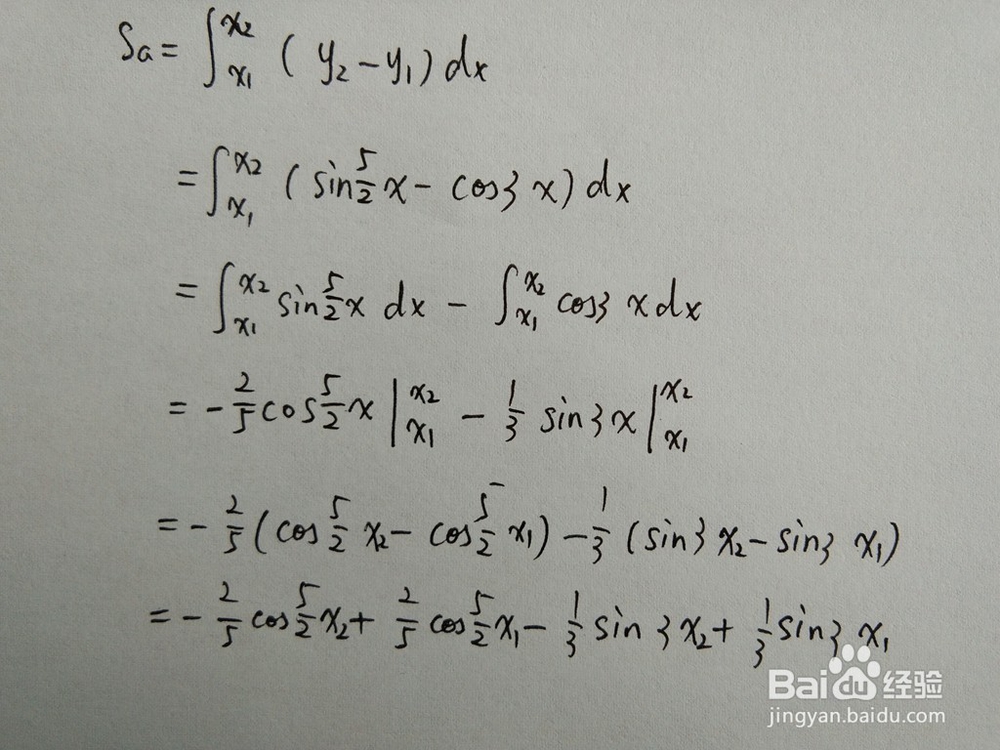 Sa = ∫_{x₁}^{x₂} (y₂ - y₁) dx
= ∫_{x₁}^{x₂} (sin 5/2 x - cos3x) dx
= ∫_{x₁}^{x₂} sin 5/2 x dx - ∫_{x₁}^{x₂} cos3x dx
= - 2/5 cos 5/2 x |_{x₁}^{x₂} - 1/3 sin3x |_{x₁}^{x₂}
= - 2/5 (cos 5/2 x₂ - cos 5/2 x₁) - 1/3 (sin3x₂ - sin3x₁)
= - 2/5 cos 5/2 x₂ + 2/5 cos 5/2 x₁ - 1/3 sin3x₂ + 1/3 sin3x₁
Baidu 经验
jingyan.baidu.com